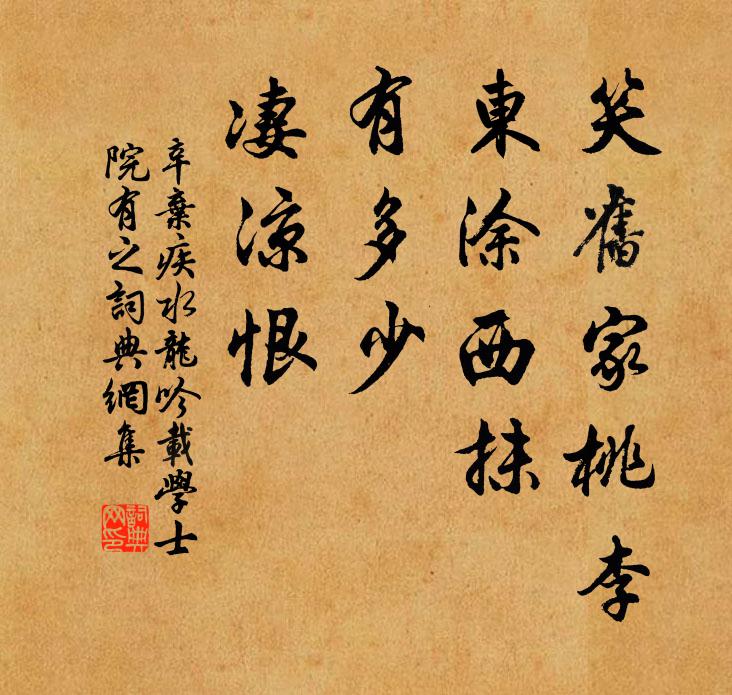 笑舊家桃李
東涂西抹
有多少
凄凉恨
辛棄疾水龍吟載學士
院有之詞典網集
詞典网印